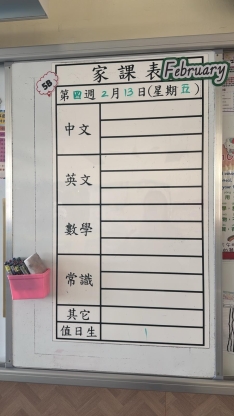 家課表
February
5B
第四週2月13日(星期五)
中文
英文
數學
常識
其它
值日生
1